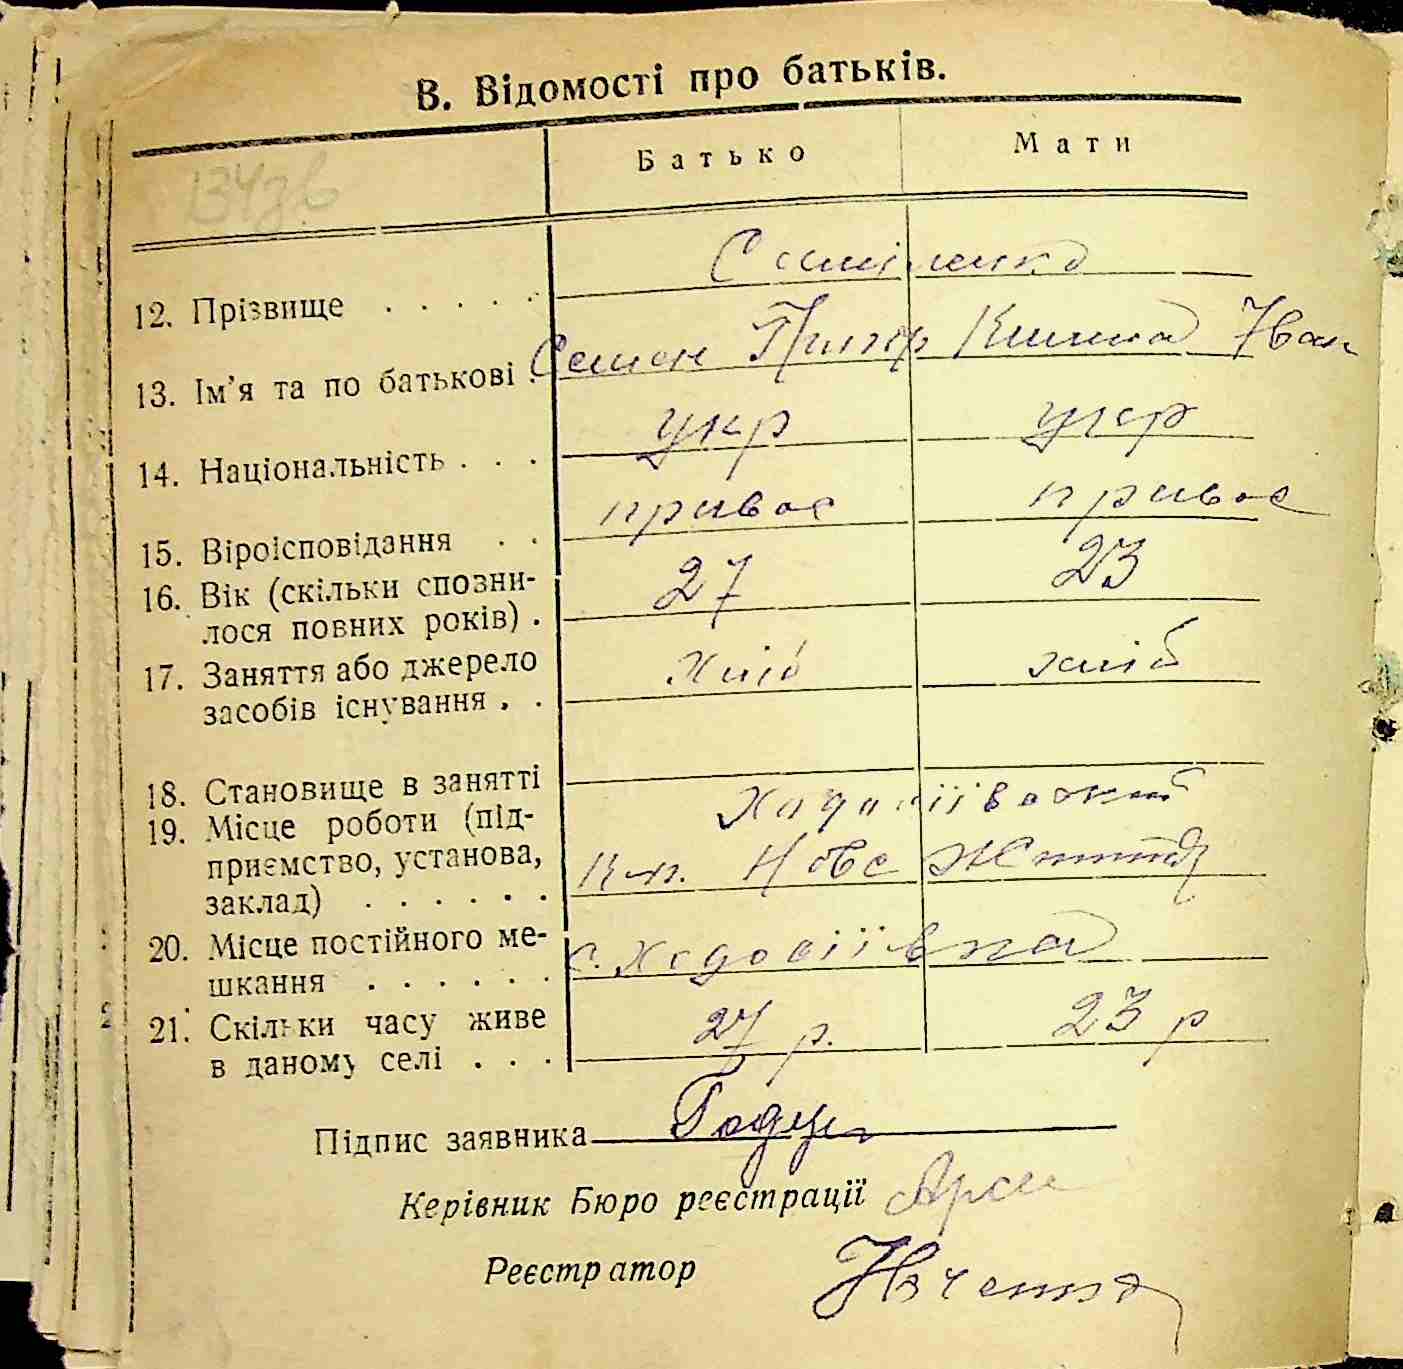 В. Відомості про батьків.
Батько Мати
134зв
12. Прізвище . . . . . Самійленко
13. Ім'я та по батькові . Семен Григор Килина Іван
14. Національність . . . укр укр
15. Віроісповідання . . правос правос
16. Вік (скільки спозни-
лося повних років) . 27 23
17. Заняття або джерело
засобів існування . . хліб хліб
18. Становище в занятті
19. Місце роботи (під-
приємство, установа,
заклад) . . . . . . Ходосіївський
Нове Життя
20. Місце постійного ме-
шкання . . . . . . с. Ходосіївка
21. Скільки часу живе
в даному селі . . . 27 р. 23 р
Підпис заявника
Керівник Бюро реєстрації
Реєстратор